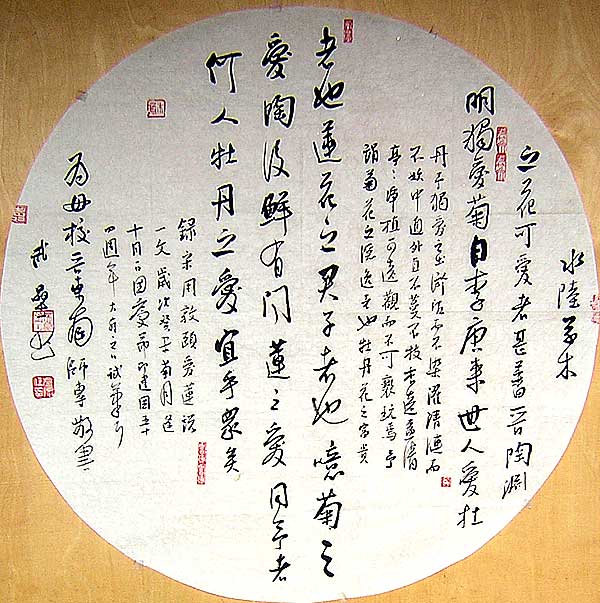 水陸草木
之花可愛者甚蕃晉陶淵
明獨愛菊自李唐來世人愛牡
丹予獨愛蓮淤泥而不染濯清漣而
不妖中通外直不蔓不枝香遠益清
亭々淨植可遠觀而不可褻玩焉予
謂菊花之隱逸者也牡丹花之富貴
者也蓮花之君子者也噫菊之
愛陶後鮮有聞蓮之愛同予者
何人牡丹之愛宜乎眾矣
錄宋周敦頤愛蓮說
一文歲次癸未菊月
十月一日國慶節即建國五十
四週年大
為母校師專敬書
武